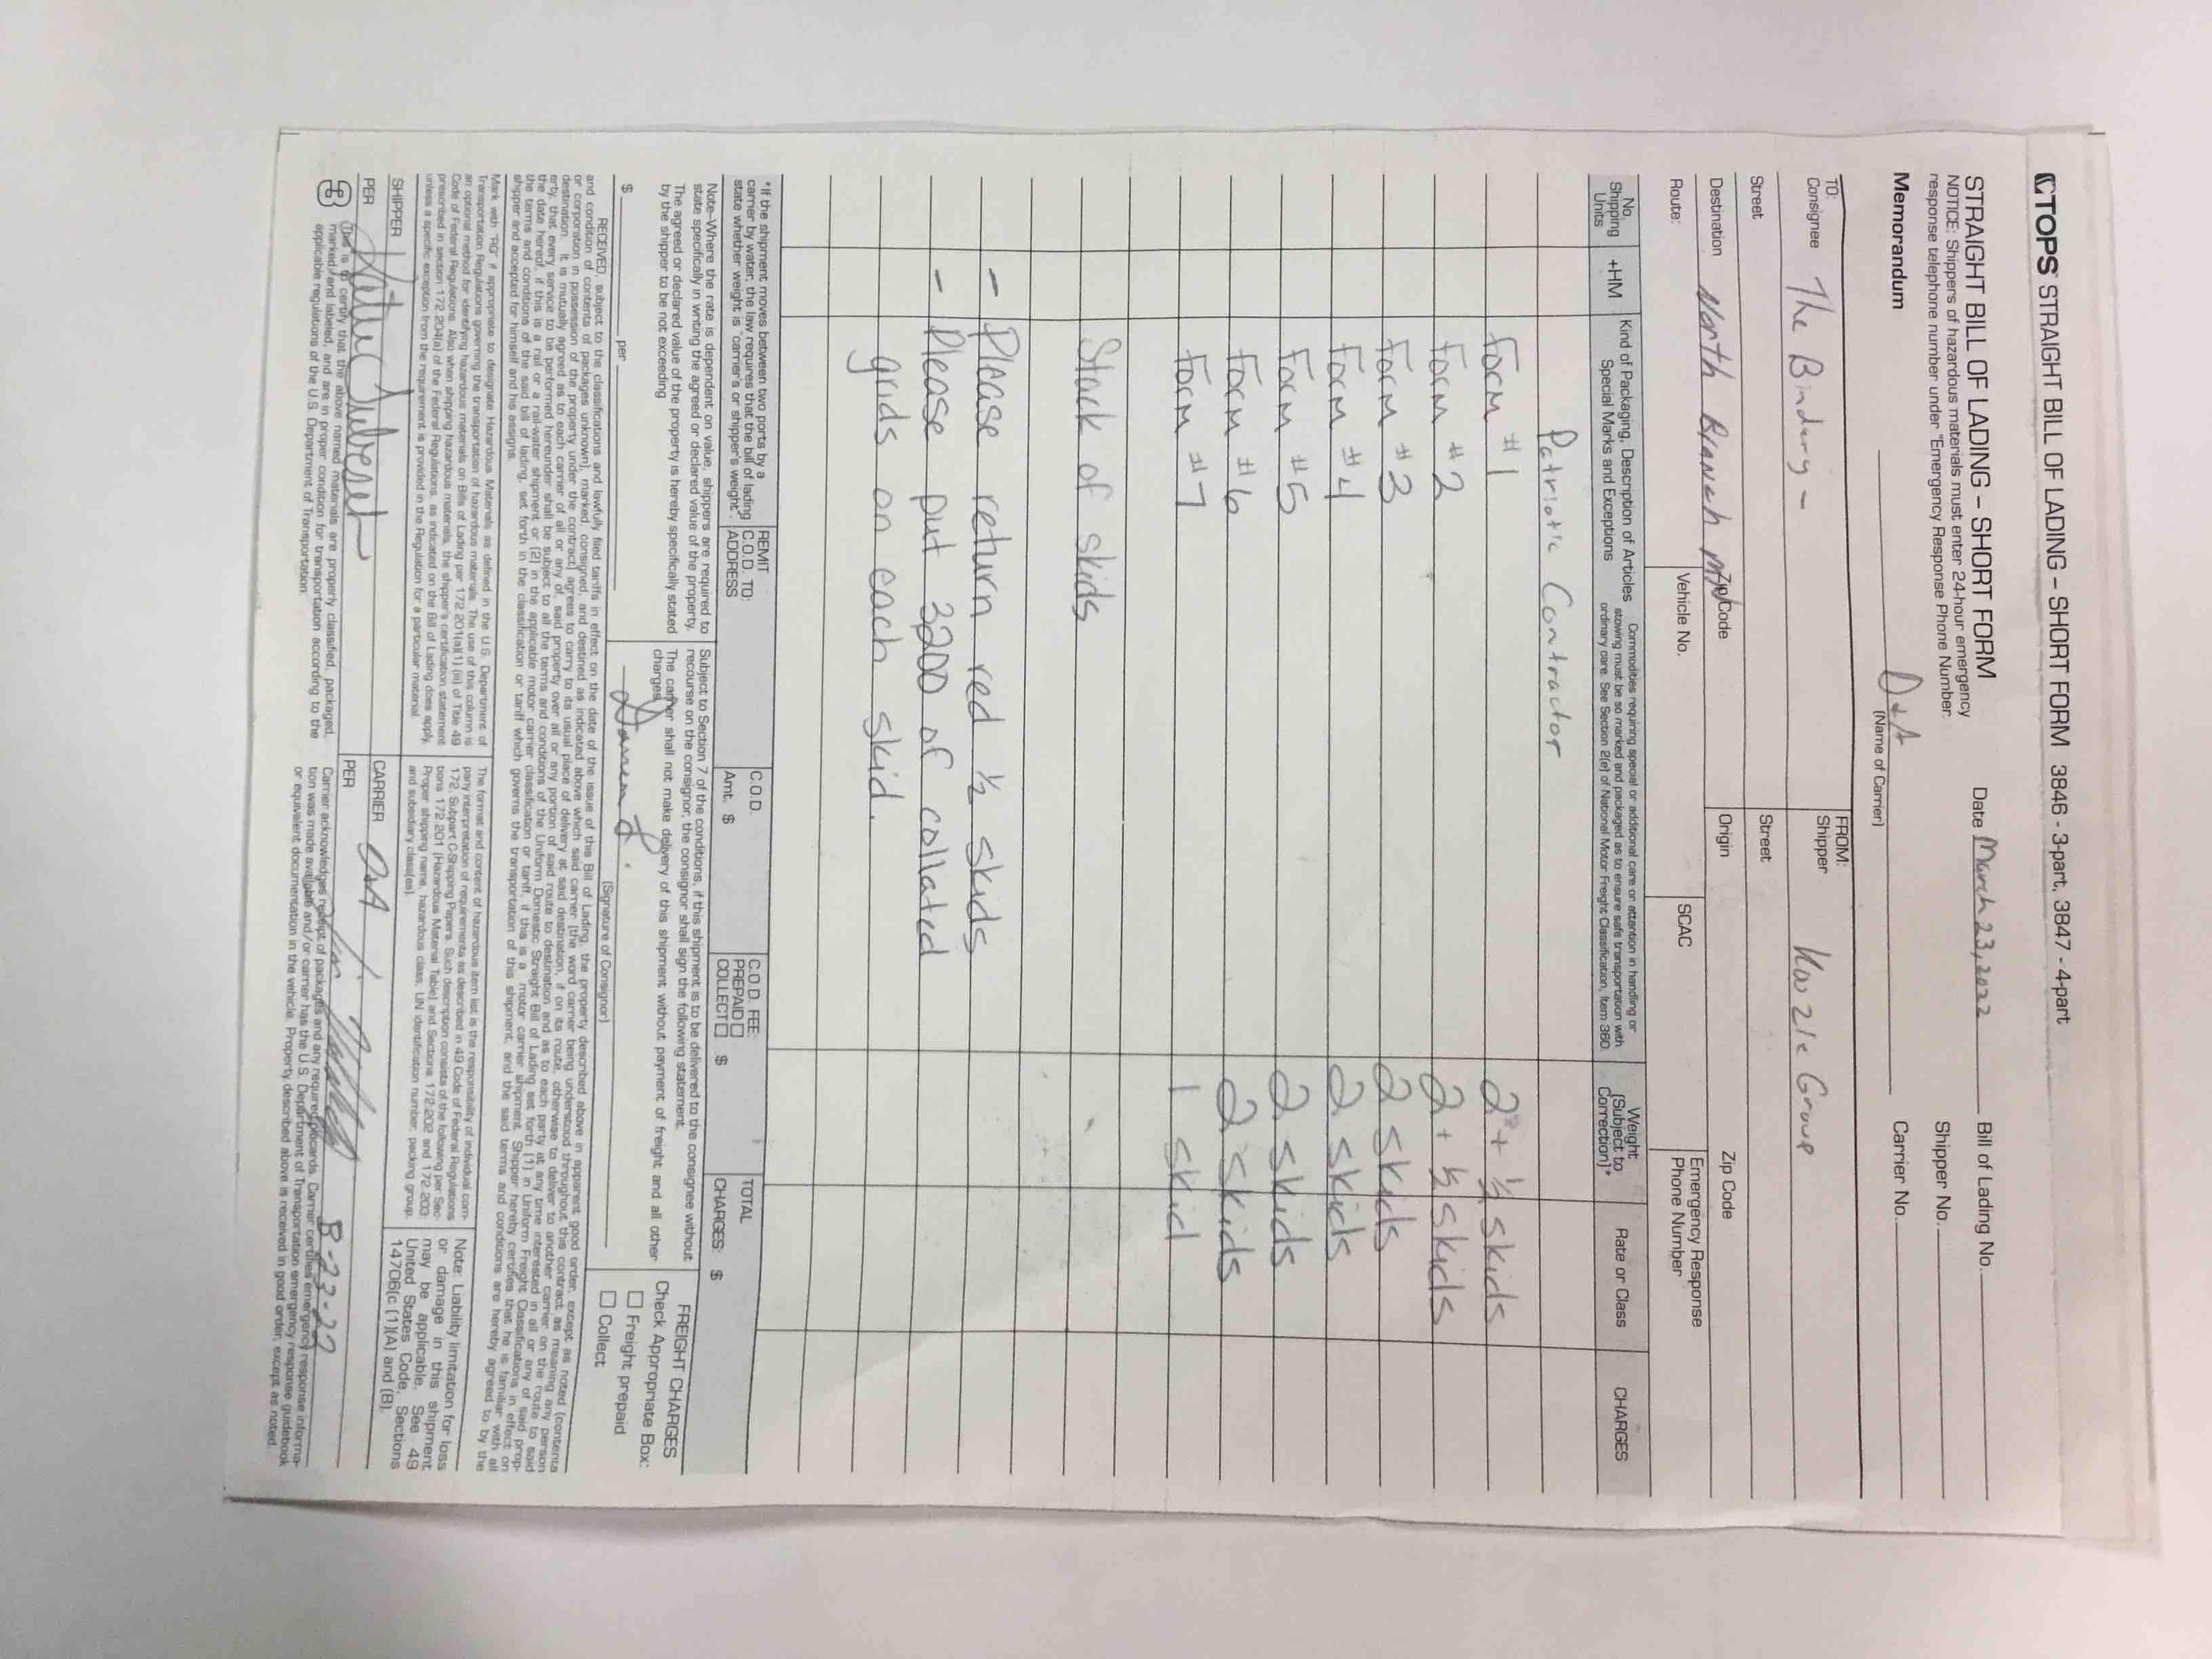 TOPS STRAIGHT BILL OF LADING – SHORT FORM 3846 - 3-part, 3847 - 4-part
STRAIGHT BILL OF LADING – SHORT FORM Date March 23, 2022 Bill of Lading No.
NOTICE: Shippers of hazardous materials must enter 24-hour emergency
response telephone number under "Emergency Response Phone Number.
Shipper No.
Memorandum D&A Carrier No.
(Name of Carrier)
TO:
Consignee The Bindery -
FROM:
Shipper Kuzzle Group
Street
Street
Destination North Branch MN Zip Code
Origin Zip Code
Route: Vehicle No. SCAC Emergency Response
Phone Number
No.
Shipping
Units
+HM
Kind of Packaging, Description of Articles
Special Marks and Exceptions
Commodities requiring special or additional care or attention in handling or
stowing must be so marked and packaged as to ensure safe transportation with
ordinary care. See Section 2(e) of National Motor Freight Classification, Item 360.
Weight
(Subject to
Correction)*
Rate or Class
CHARGES
Patriotic Contractor
Form #1 2 + ½ skids
Form #2 2 + ½ skids
Form #3 2 skids
Form #4 2 skids
Form #5 2 skids
Form #6 2 skids
Form #7 1 skid
Stack of skids
- Please return red ½ skids
- Please put 3200 of collated
grids on each skid.
*If the shipment moves between two ports by a
carrier by water, the law requires that the bill of lading
state whether weight is "carrier's or shipper's weight".
REMIT
C.O.D. TO:
ADDRESS
C.O.D.
Amt. $
C.O.D. FEE:
PREPAID
COLLECT $
TOTAL
CHARGES: $
Note–Where the rate is dependent on value, shippers are required to
state specifically in writing the agreed or declared value of the property.
The agreed or declared value of the property is hereby specifically stated
by the shipper to be not exceeding
$ per
Subject to Section 7 of the conditions, if this shipment is to be delivered to the consignee without
recourse on the consignor, the consignor shall sign the following statement.
The carrier shall not make delivery of this shipment without payment of freight and all other
charges.
(Signature of Consignor)
FREIGHT CHARGES
Check Appropriate Box:
Freight prepaid
Collect
RECEIVED, subject to the classifications and lawfully filed tariffs in effect on the date of the issue of this Bill of Lading, the property described above in apparent good order, except as noted (contents
and condition of contents of packages unknown), marked, consigned, and destined as indicated above which said carrier (the word carrier being understood throughout this contract as meaning any person
or corporation in possession of the property under the contract) agrees to carry to its usual place of delivery at said destination, if on its route, otherwise to deliver to another carrier on the route to said
destination. It is mutually agreed as to each carrier of all or any of, said property over all or any portion of said route to destination and as to each party at any time interested in all or any of said prop-
erty, that every service to be performed hereunder shall be subject to all the terms and conditions of the Uniform Domestic Straight Bill of Lading set forth (1) in Uniform Freight Classifications in effect on
the date hereof, if this is a rail or a rail-water shipment, or (2) in the applicable motor carrier classification or tariff, if this is a motor carrier shipment. Shipper hereby certifies that he is familiar with all
the terms and conditions of the said bill of lading, set forth in the classification or tariff which governs the transportation of this shipment, and the said terms and conditions are hereby agreed to by the
shipper and accepted for himself and his assigns.
Mark with "RQ" if appropriate to designate Hazardous Materials as defined in the U.S. Department of
Transportation Regulations governing the transportation of hazardous materials. The use of this column is
an optional method for identifying hazardous materials on Bills of Lading per 172.201(a)(1)(iii) of Title 49
Code of Federal Regulations. Also when shipping hazardous materials, the shipper's certification statement
prescribed in section 172.204(a) of the Federal Regulations, as indicated on the Bill of Lading does apply,
unless a specific exception from the requirement is provided in the Regulation for a particular material.
The format and content of hazardous item list is the responsibility of individual com-
pany interpretation of requirements as described in 49 Code of Federal Regulations
172, Subpart C-Shipping Papers. Such description consists of the following per Sec-
tions 172.201 (Hazardous Material Table) and Sections 172.202 and 172.203:
Proper shipping name, hazardous class, UN identification number, packing group,
and subsidiary class(es).
Note: Liability limitation for loss
or damage in this shipment
may be applicable. See 49
United States Code, Sections
14706(c (1)(A) and (B).
SHIPPER
CARRIER D&A
PER
PER 3-23-22
This is to certify that the above named materials are properly classified, packaged,
marked, and labeled, and are in proper condition for transportation according to the
applicable regulations of the U.S. Department of Transportation.
Carrier acknowledges receipt of packages and any required placards. Carrier certifies emergency response informa-
tion was made available and/or carrier has the U.S. Department of Transportation emergency response guidebook
or equivalent documentation in the vehicle. Property described above is received in good order, except as noted.